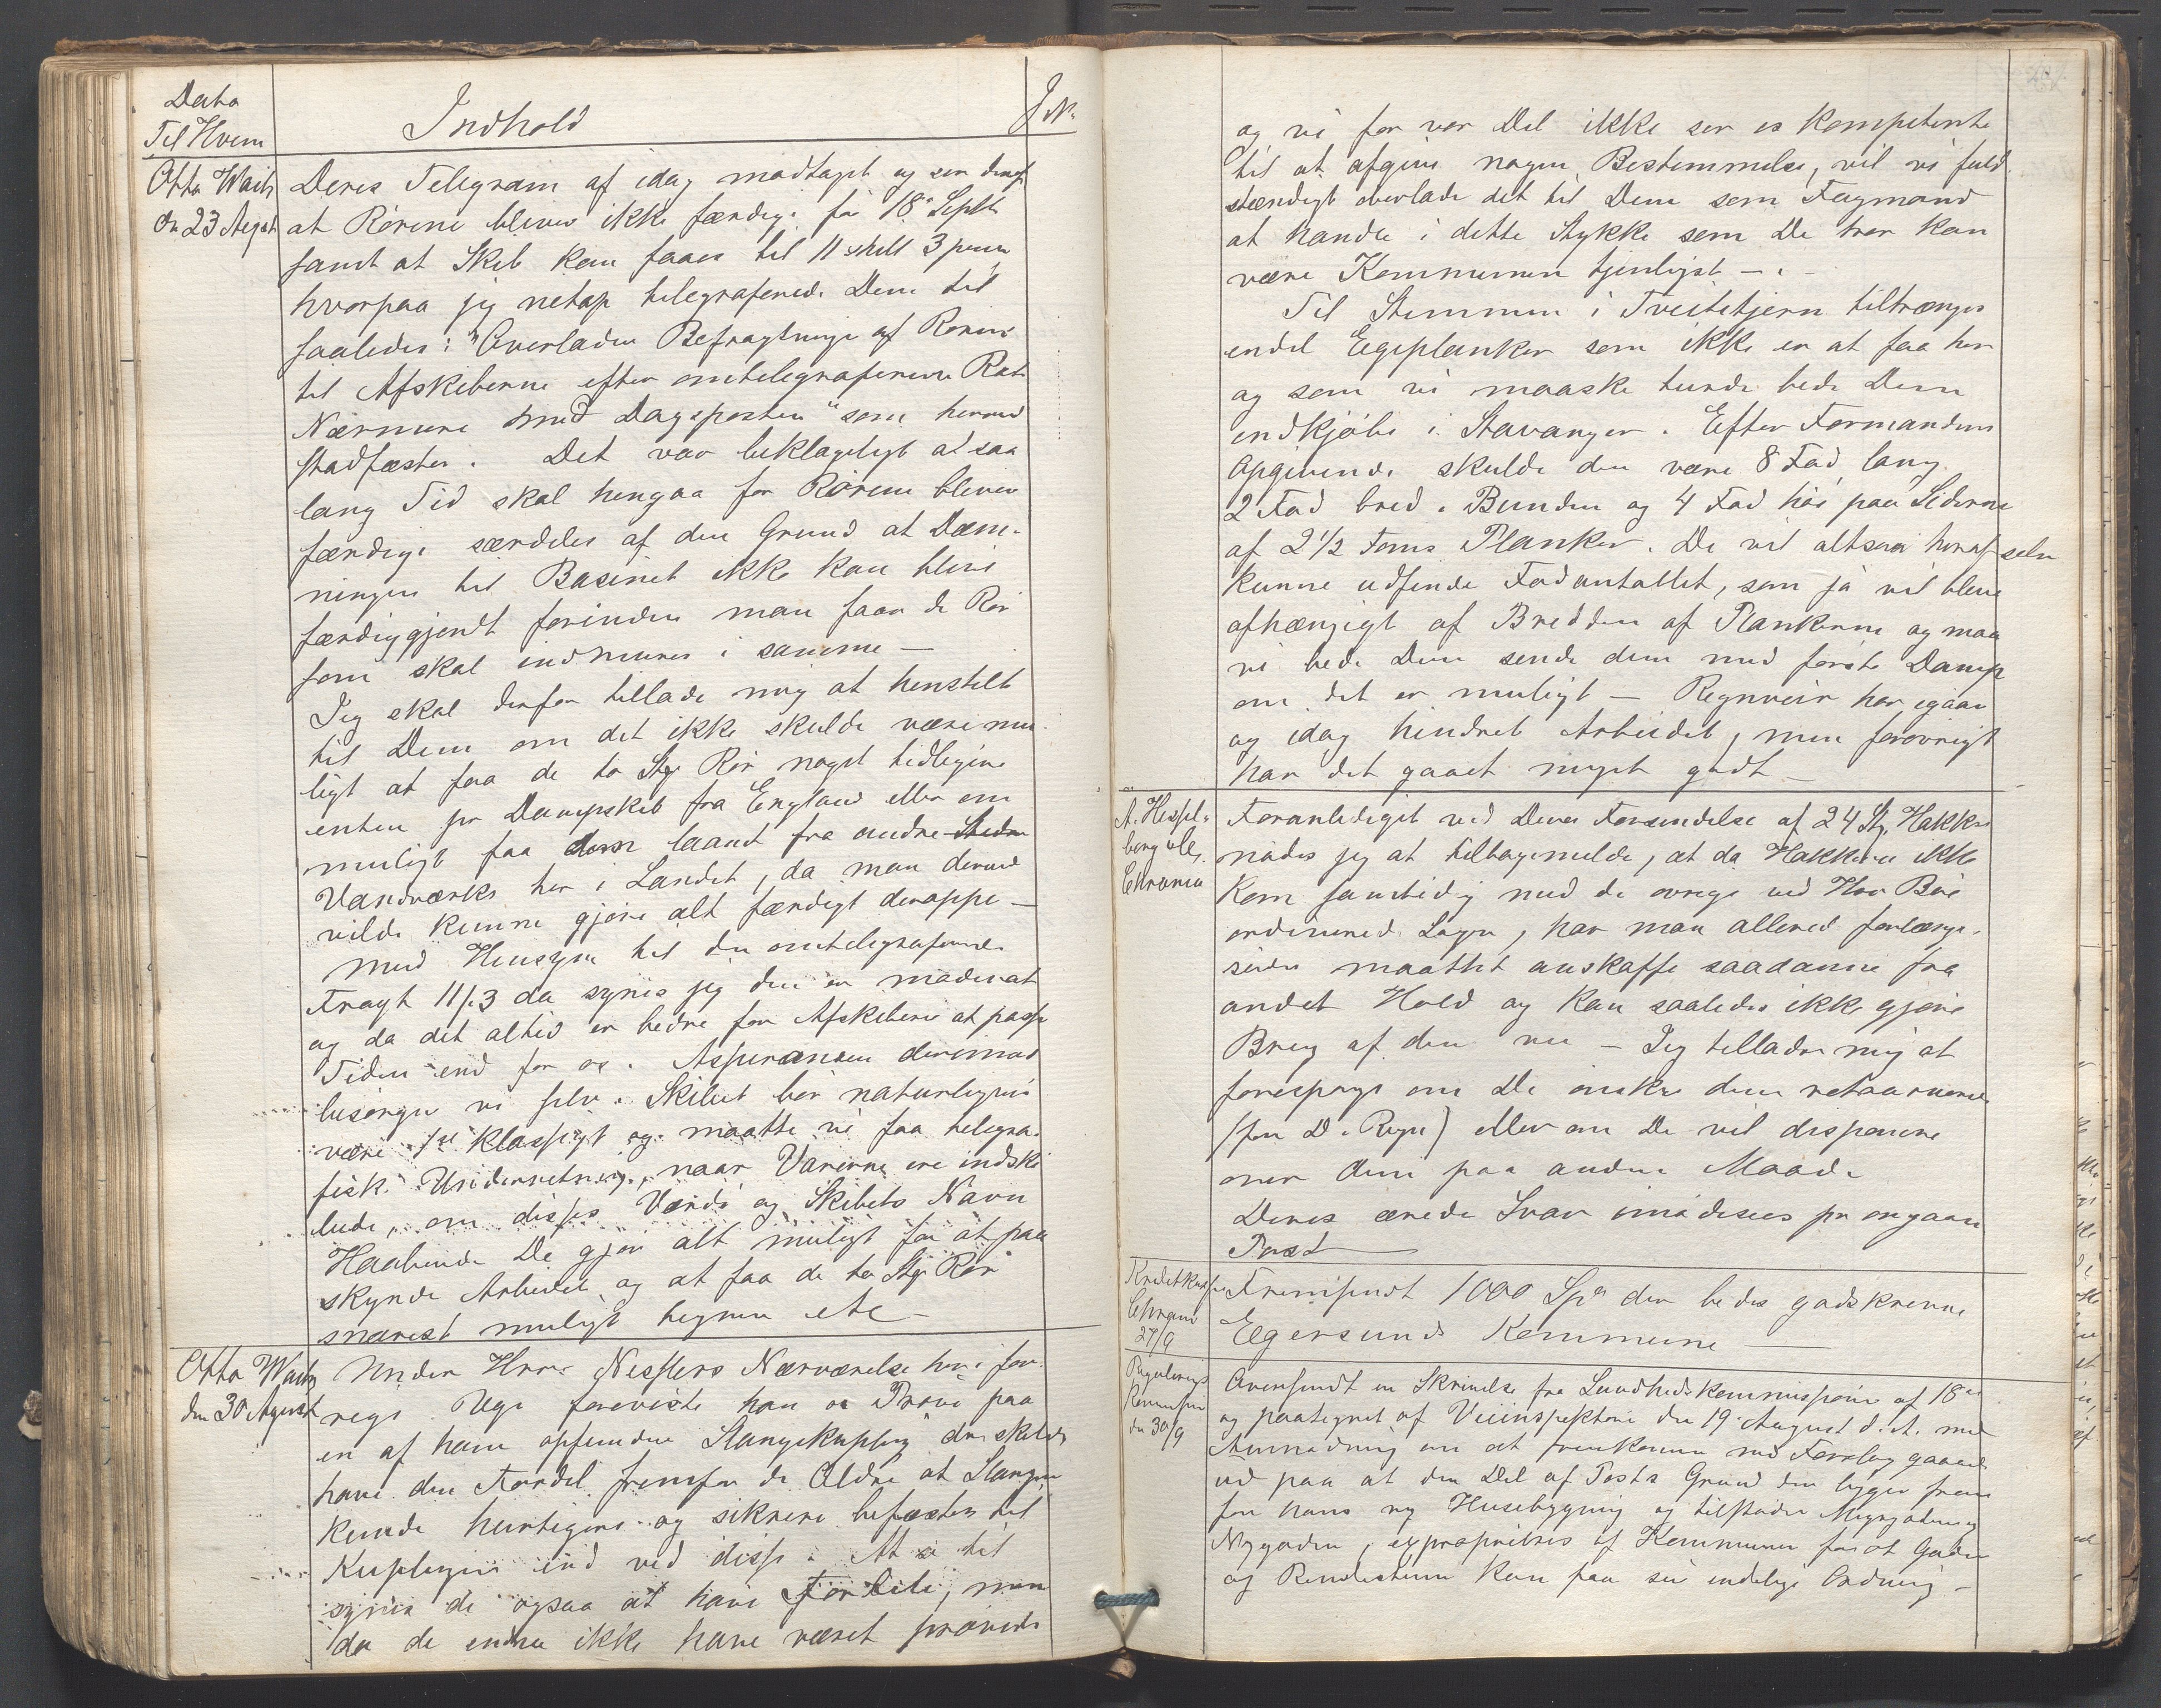 Data
Til Hvem
Indhold
J.N.
Otto Waitz
Dn 23 Augst
Deres Telegram af idag modtaget og ser deraf
at Rörene bliver ikke færdige för 18de Septb
samt at Skib kan faaes til 11 shill 3 pence
hvorpaa jeg netop telegraferede Dem til
saaledes: "Overlader Befragtninge af Rörene
til Afskiberne efter omtelegraferede Rate
Nærmere med Dagsposten" som herved
stadfæstes. Det var beklageligt at saa
lang Tid skal hengaa før Rörene bliver
færdige særdeles af den Grund at Dæm-
ningen til Basinet ikke kan blive
færdiggjordt forinden man faar de Rör
som skal indmures i samme —
Jeg skal derfor tillade mig at henstille
til Dem om det ikke skulde være mu-
ligt at faa de to Stkr Rör noget tidligere
enten pr Dampskib fra England eller om
muligt faa dem laant fra andre
Vandværker her i Landet, da man derved
vilde kunne gjöre alt færdigt deroppe —
Med Hensyn til den omtelegraferede
Fragt 11/3 da synes jeg den er moderat
og da det altid er bedre for Afskiberne at passe
Tiden end for os. Assurancen derimod
besörger vi selv. Skibet bör naturligvis
være 1ste Klassigt og maatte vi faa telegra-
fisk Underretning, naar Varerne ere indski-
bede, om disses Værdi og Skibets Navn
Haabende De gjör alt muligt for at paa
skynde Arbeidet og at faa de to Stkr Rör
snarest muligt tegner etc —
Otto Waitz
den 30 August
Under Herr Nesslers Nærværelse her i for-
rige Uge foreviste han os Pröve paa
en af ham opfunden Slangekupling der skulde
have den Fordel fremfor de Ældre at Slangen
kunde hurtigere og sikrere befæstes til
Kuplingen end ved disse. At se til
synes de ogsaa at have Fortrin, men
da de endnu ikke have været prövede
og vi for vor Del ikke ser os kompetente
til at afgive nogen Bestemmelse, vil vi fuld-
stændigt overlade det til Dem som Fagmand
at handle i dette Stykke som De tror kan
være Kommunen tjenligst —
Til Stemmen i Tveitetjern tiltrænges
endel Egeplanker som ikke er at faa her
og som vi maaske turde bede Dem
indkjöbe i Stavanger. Efter Formandens
Opgivende skulde den være 8 Fod lang
2 Fod bred i Bunden og 4 Fod höi paa Siderne
af 2 1/2 Toms Planker. De vil altsaa heraf selv
kunne udfinde Fodantallet, som jo vil blive
afhængigt af Bredden af Plankerne og maa
vi bede Dem sende dem med förste Damp
om det er muligt — Regnveir har igaar
og idag hindret Arbeidet, men forövrigt
har det gaaet meget godt —
A. Hessel-
berg & Co
Chrania
Foranlediget ved Deres Forsendelse af 24 Stkr Hakker
nödes jeg at tilbagemelde, at da Hakkerne ikke
kom samtidig med de övrige ved Herr Böe
ordinerede Sager, har man allerede forlængst
siden maattet anskaffe saadanne fra
andet Hold og kan saaledes ikke gjöre
Brug af dem nu — Jeg tillader mig at
foresporge om De önsker dem returneret
(for D. Regn) eller om De vil disponere
over dem paa anden Maade
Deres ærede Svar imödesees pr omgaaende
Post
Kreditkassen
Chrania
27/9
Fremsendt 1000 Spd der bedes godskreven
Egersunds Kommune
Regulerings
Kommission
dn 30/9
Oversendt en Skrivelse fra Sundhedskommissionen af 18de
og paategnet af Veiinspektören den 19 August d. A. med
Anmodning om at fremkomme med Forslag gaaende
ud paa at den Del af Grund der ligger frem
for hans ny Husebygning og tilstöder
Nygaden, exproprieres af Kommunen for at Gaden
og Rendestenen kan faa sin endelige Ordning —